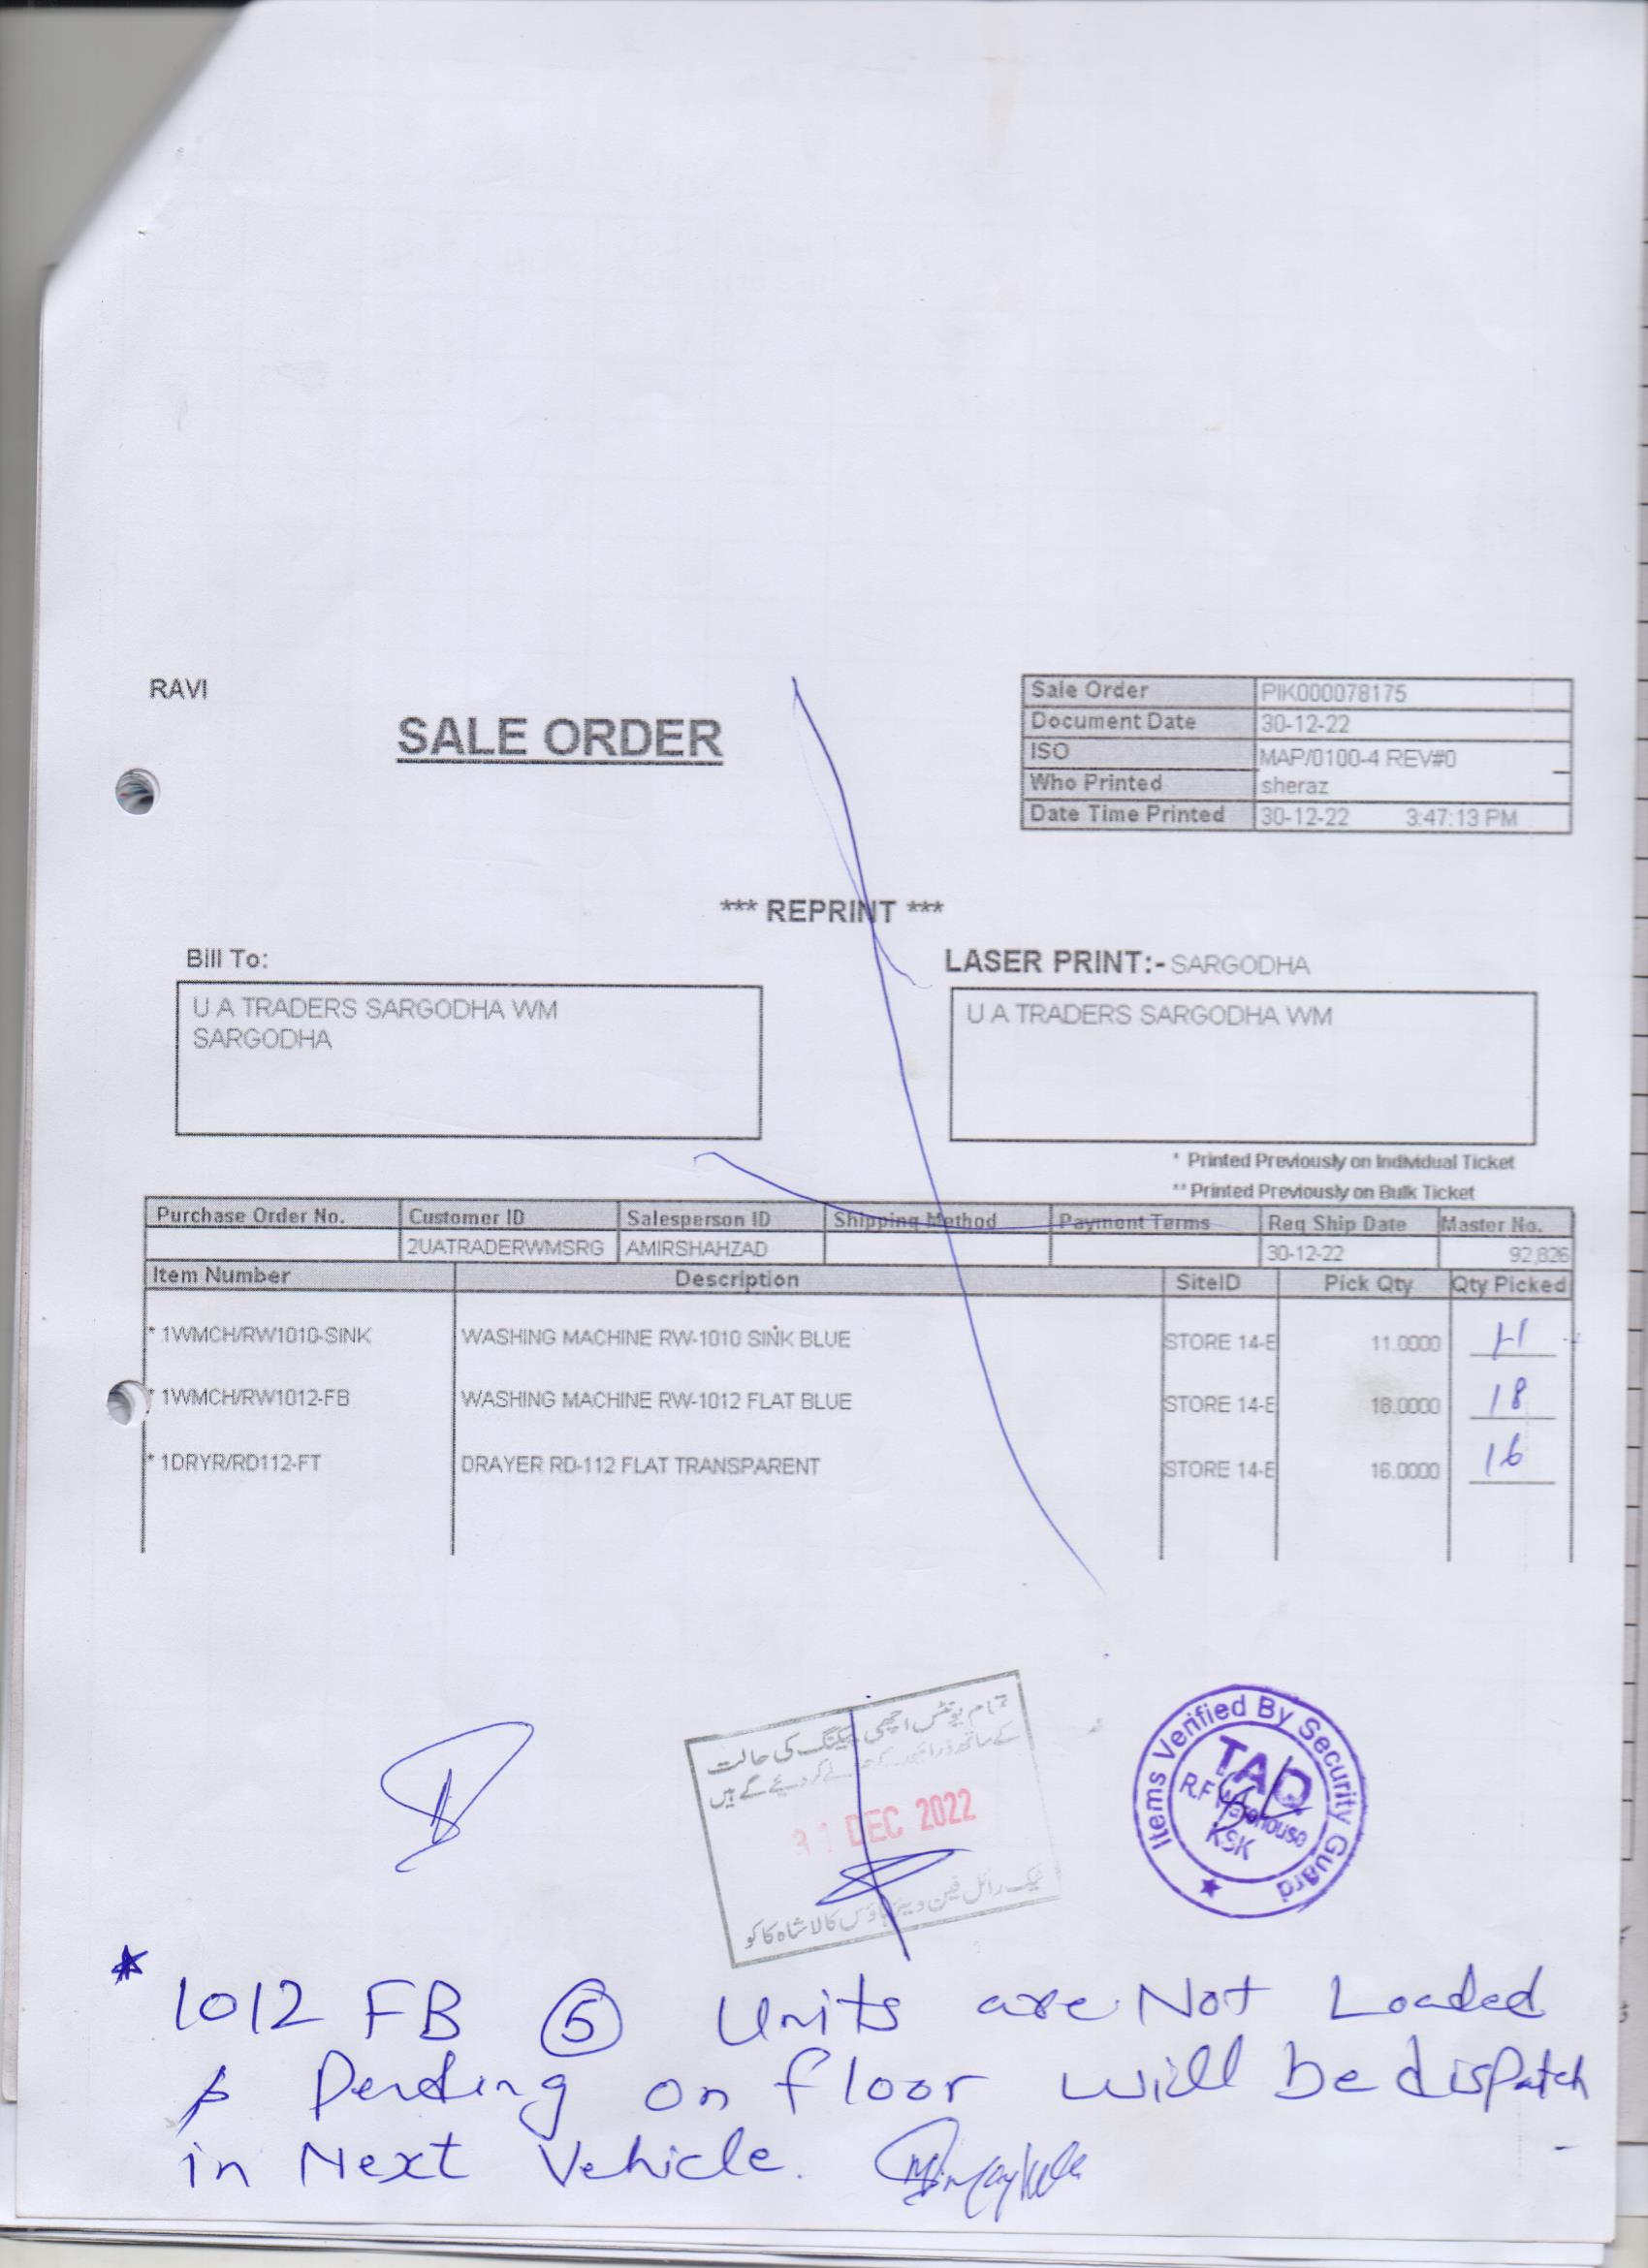 RAVI
SALE ORDER
Sale Order PIK000078175
Document Date 30-12-22
ISO MAP/0100-4 REV#0
Who Printed sheraz
Date Time Printed 30-12-22 3:47:13 PM
*** REPRINT ***
Bill To:
U A TRADERS SARGODHA WM
SARGODHA
LASER PRINT:- SARGODHA
U A TRADERS SARGODHA WM
* Printed Previously on Individual Ticket
** Printed Previously on Bulk Ticket
Purchase Order No. Customer ID Salesperson ID Shipping Method Payment Terms Req Ship Date Master No.
2UATRADERWMSRG AMIRSHAHZAD 30-12-22 92,826
Item Number Description SiteID Pick Qty Qty Picked
* 1WMCH/RW1010-SINK WASHING MACHINE RW-1010 SINK BLUE STORE 14-E 11.0000 11
* 1WMCH/RW1012-FB WASHING MACHINE RW-1012 FLAT BLUE STORE 14-E 18.0000 18
* 1DRYR/RD112-FT DRAYER RD-112 FLAT TRANSPARENT STORE 14-E 16.0000 16
تمام یونٹس اچھی پیکنگ کی حالت
کے ساتھ ڈرائیور کے حوالے کر دیئے گے ہیں
31 DEC 2022
ٹیک رائل فین ویئر ہاؤس کالا شاہ کاکو
Items Verified By Security Guard
TAD
R.F Warehouse
KSK
* 1012 FB 5 Units are Not Loaded
Pending on floor will be dispatch
in Next Vehicle.